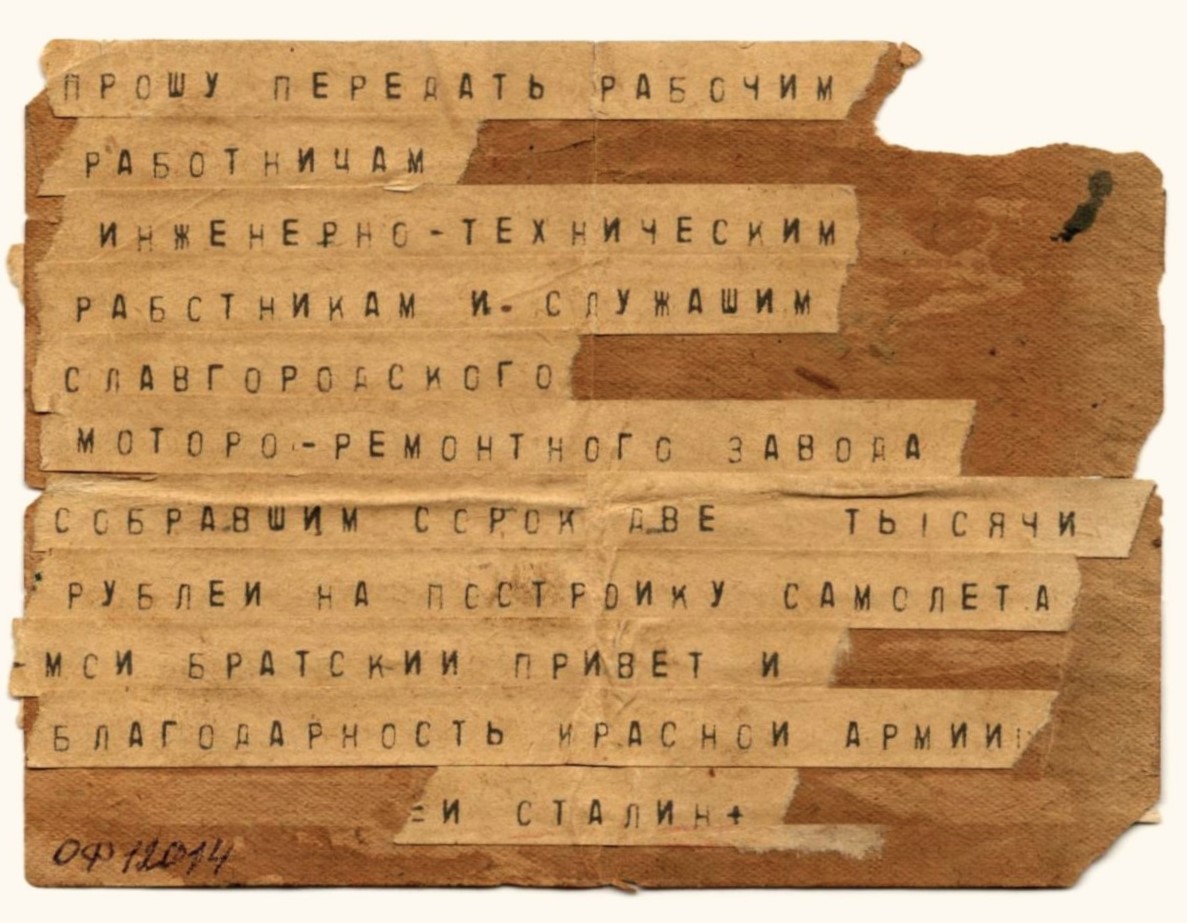 ПРОШУ ПЕРЕДАТЬ РАБОЧИМ
РАБОТНИЦАМ
ИНЖЕНЕРНО-ТЕХНИЧЕСКИМ
РАБОТНИКАМ И СЛУЖАШИМ
СЛАВГОРОДСКОГО
МОТОРО-РЕМОНТНОГО ЗАВОДА
СОБРАВШИМ СОРОК ДВЕ ТЫСЯЧИ
РУБЛЕИ НА ПОСТРОИКУ САМОЛЕТА
-МОИ БРАТСКИИ ПРИВЕТ И
БЛАГОДАРНОСТЬ КРАСНОИ АРМИИ
=И СТАЛИН+
ОФ 12014